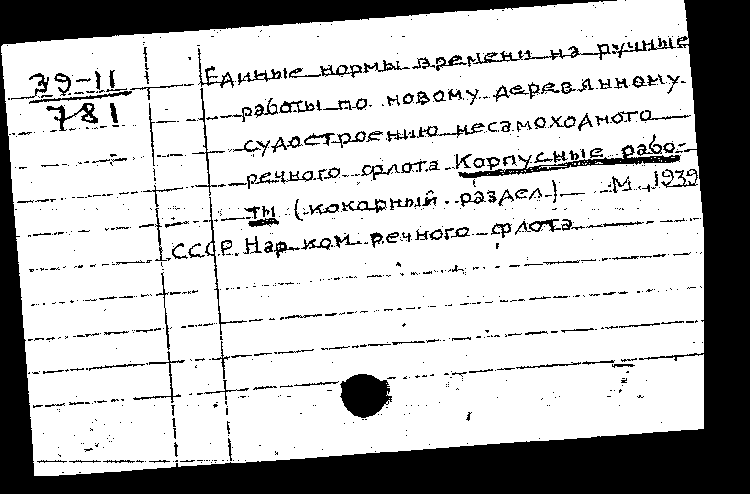 39-11
781
Единые нормы времени на ручные
работы по новому деревянному
судостроению несамоходного
речного флота Корпусные рабо-
ты (кокарный раздел) М, 1939
СССР. Нар. ком. речного флота